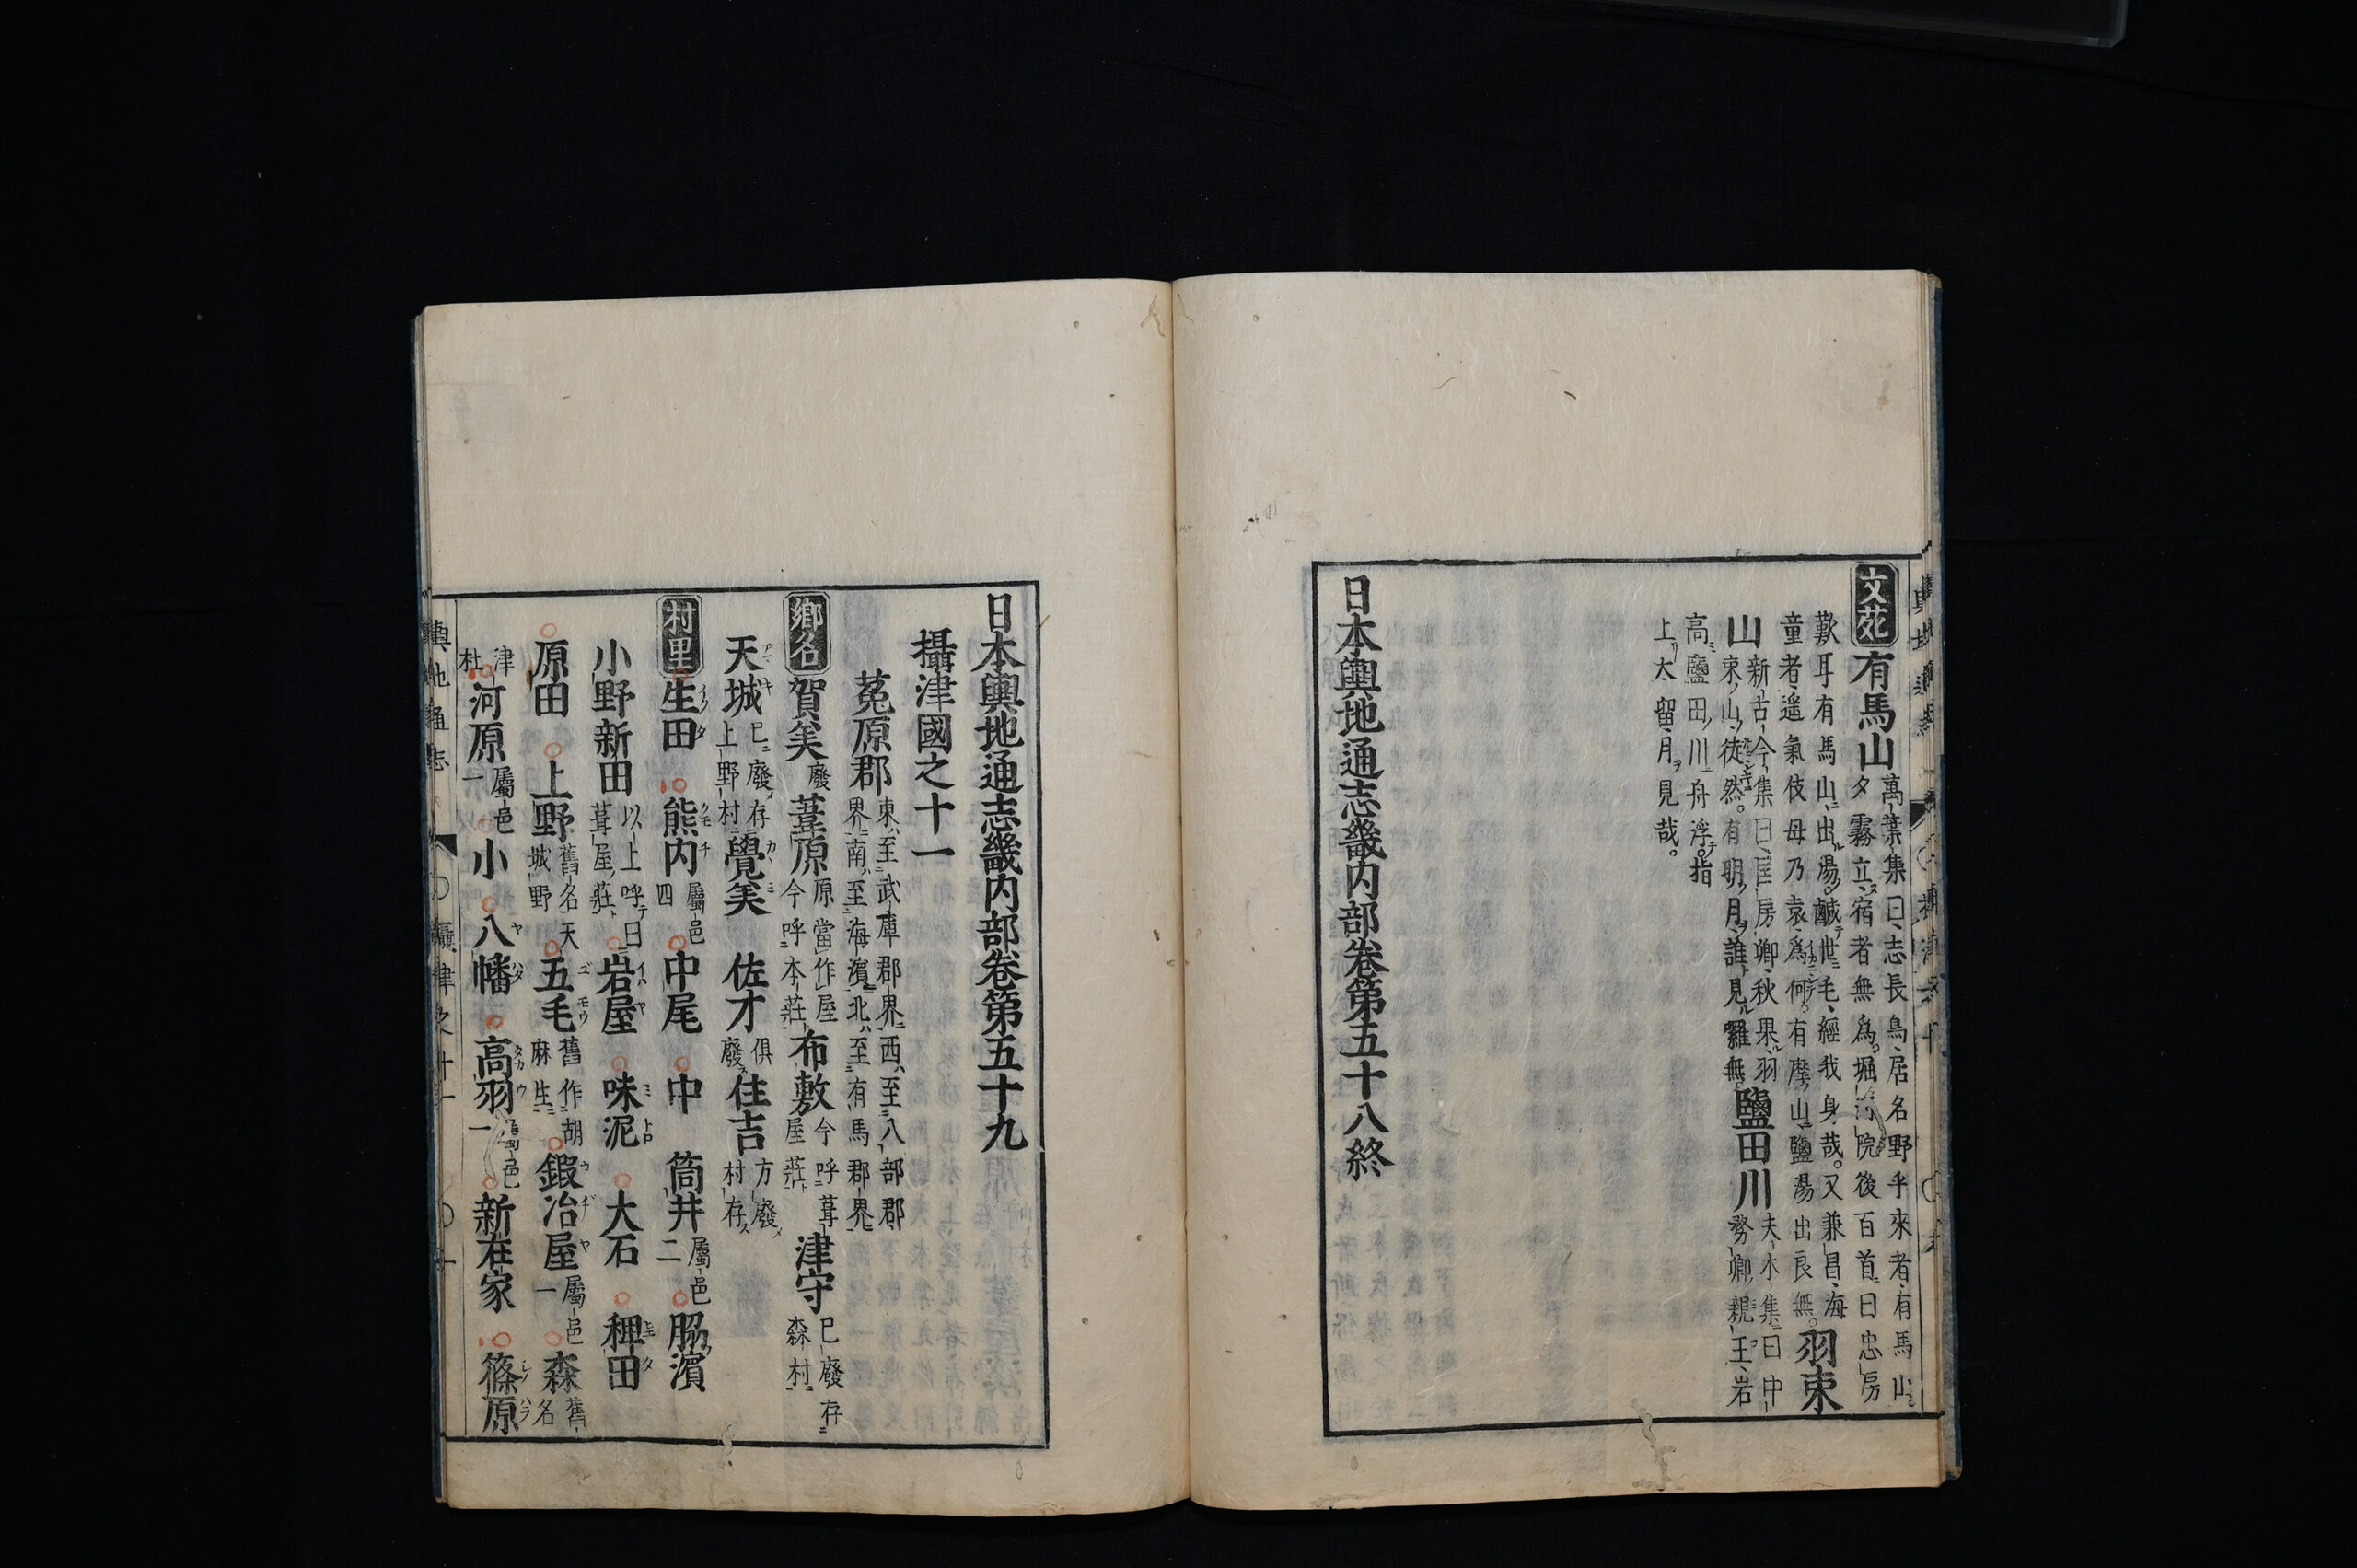 文苑 有馬山 萬葉集曰志長鳥居名野乎來者有馬山
夕霧立宿者無爲堀河院後百首曰忠房
歎耳有馬山出湯鹹世毛經我身哉又兼昌海
童者遥氣伎母乃袁爲何有摩山鹽湯出良無 羽束
山 新古今集曰匡房卿秋果羽
束山徒然有明月誰見羅無 鹽田川 夫木集曰中
務卿親王岩
高鹽田川舟浮指
上太留月見哉
日本輿地通志畿内部卷第五十八終
日本輿地通志畿内部卷第五十九
攝津國之十一
菟原郡 東至武庫郡界西至八部郡
界南至海濱北至有馬郡界
鄉名 賀美 廢 葦原 原當作屋
今呼本莊 布敷 今呼葺
屋莊 津守 已廢存
森村
天城 已廢存
上野村 覺美 佐才 俱
廢 住吉 方廢
村存
村里 生田 熊内 屬邑
四 中尾 中 筒井 屬邑
二 脇濱
小野新田 以上呼曰
葺屋莊 岩屋 味泥 大石 稗田
原田 上野 舊名天
城野 五毛 舊作胡
麻生 鍜冶屋 屬邑
一 森 舊
名
津
杜 河原 屬邑
一 小 八幡 高羽 屬邑
一 新在家 篠原
輿地通志 攝津之十一